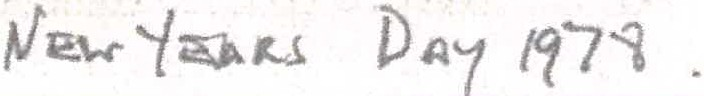 New Years Day 1978.